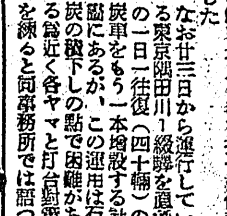 した
なお廿三日から運行してい
る東京隅田川—綴鑛を直通
の一日一往復（四十輛）の
炭車をもう一本増設する計
訟にあるが、この運用は石
炭の積下しの點で困難があ
る為近く各ヤマと打合
を練ると同事務所では語つ